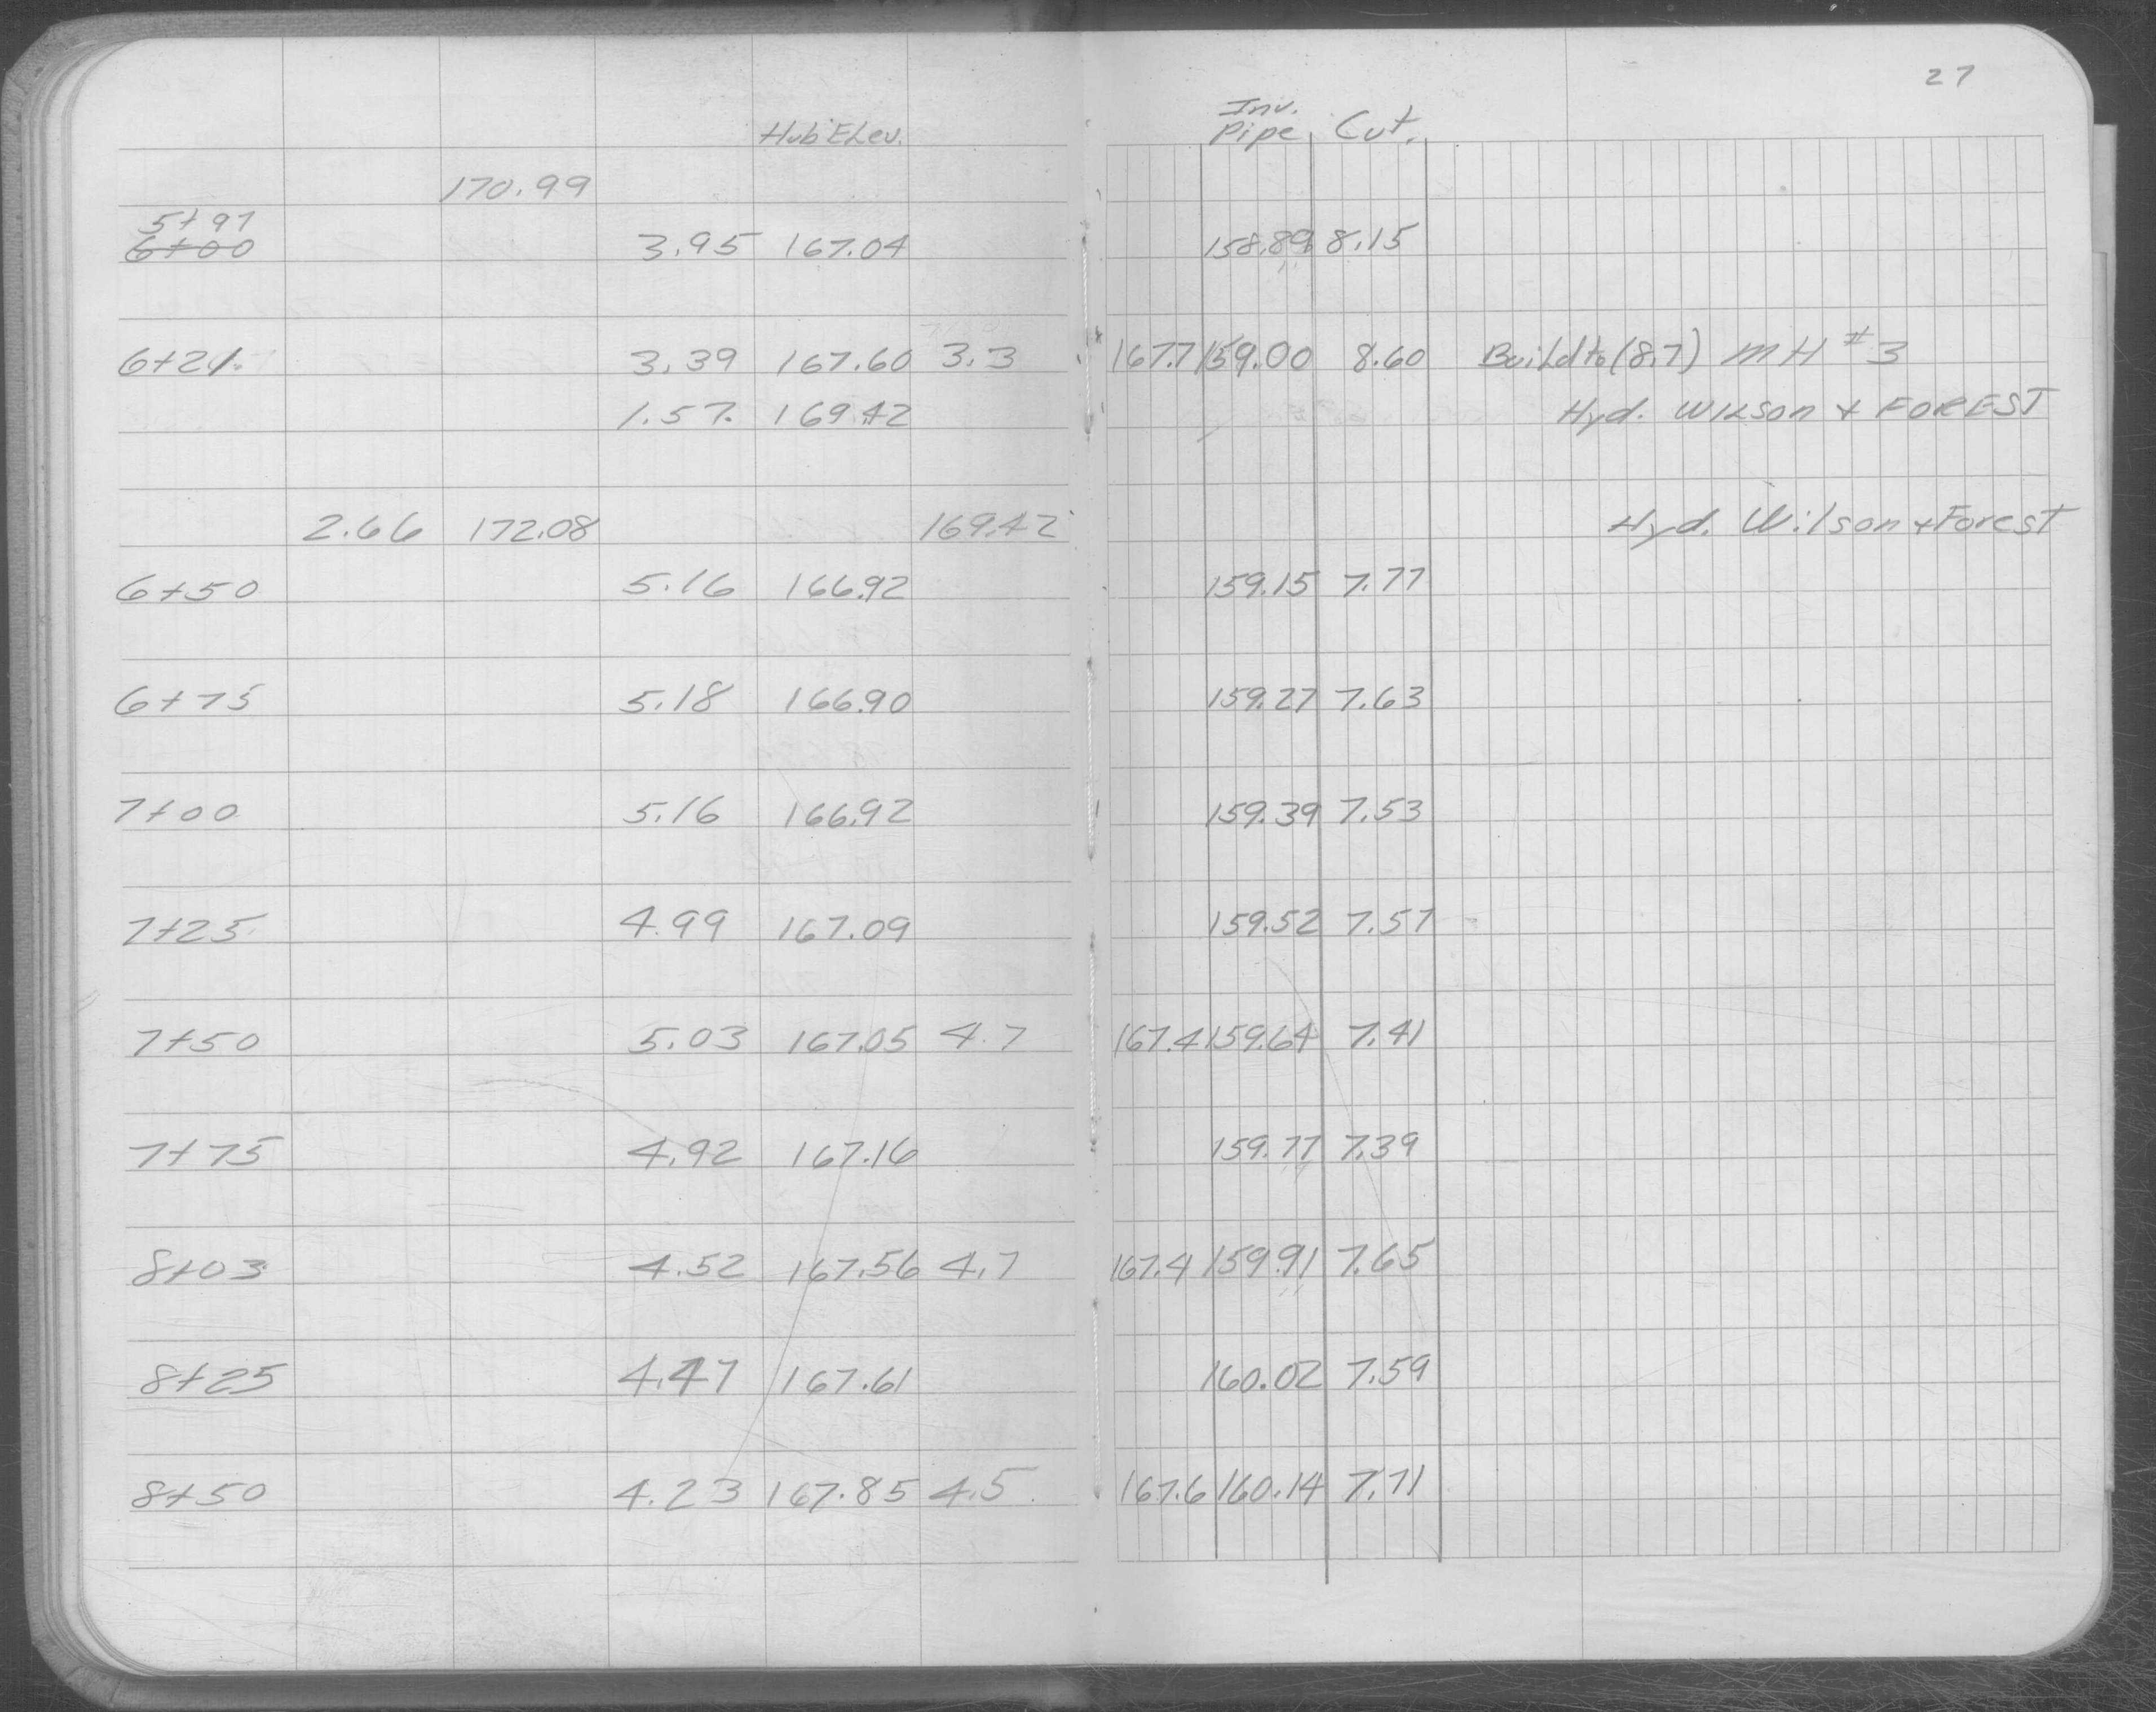 27
Hub Elev. Inv. Pipe Cut.
170.99
5+97
6+00 3.95 167.04 158.89 8.15
6+21 3.39 167.60 3.3 167.7 159.00 8.60 Build to (8.7) MH #3
1.57 169.42 Hyd. Wilson + FOREST
2.66 172.08 169.42 Hyd. Wilson + Forest
6+50 5.16 166.92 159.15 7.77
6+75 5.18 166.90 159.27 7.63
7+00 5.16 166.92 159.39 7.53
7+25 4.99 167.09 159.52 7.57
7+50 5.03 167.05 4.7 167.4 159.64 7.41
7+75 4.92 167.16 159.77 7.39
8+03 4.52 167.56 4.7 167.4 159.91 7.65
8+25 4.47 167.61 160.02 7.59
8+50 4.23 167.85 4.5 167.6 160.14 7.71